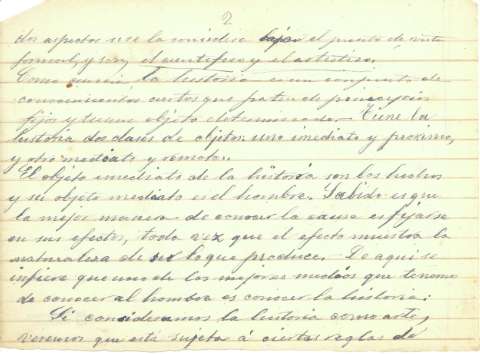 2
dos aspectos se la considera bajo el punto de vista
formal, y son, el cientifico y el artistico.
Como ciencia la historia es un conjunto de
conocimientos ciertos que parten de principios
fijos y tienen objeto determinado. - Tiene la
historia dos clases de objetos: uno imediato y proximo,
y otro mediato y remoto.
El objeto imediato de la historia son los hechos
y su objeto mediato es el hombre. Sabido es que
la mejor manera de conocer la causa es fijarse
en sus efectos, toda vez que el efecto muestra la
naturaleza de lo que produce. De aqui se
infiere que uno de los mejores medios que tenemos
de conocer al hombre es conocer la historia.
Si consideramos la historia como arte, y
veremos que está sujeta á ciertas reglas de